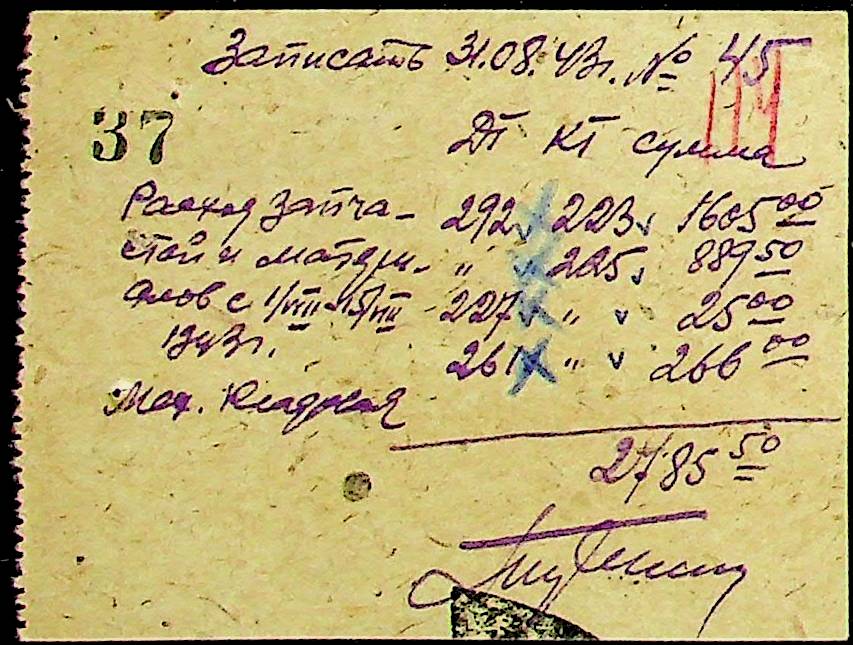 Записать 31.08.43г. № 45
37
Дт Кт сумма
Расход запча- 292 223 1605 00
стей и матери- " " 225 889 50
алов с 1/VIII-15/VIII 227 " 25 00
1943г. 261 " 266 00
Мех. Кладовая
2785 50